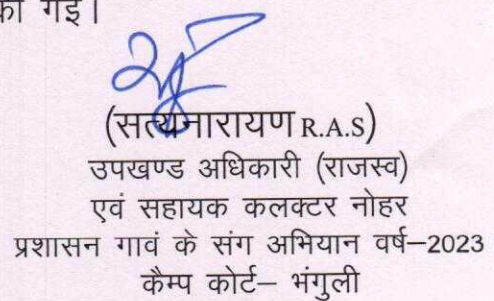 की गई।
(सत्यनारायण R.A.S)
उपखण्ड अधिकारी (राजस्व)
एवं सहायक कलक्टर नोहर
प्रशासन गावं के संग अभियान वर्ष–2023
कैम्प कोर्ट– भंगुली